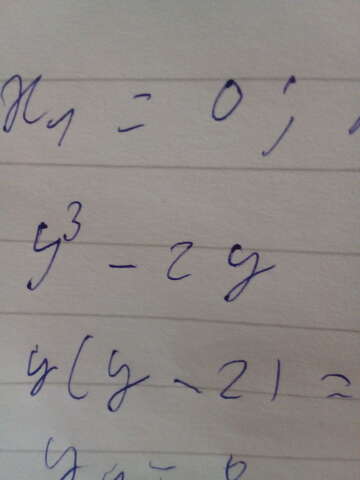 x₁ = 0 ;
y³ - 2y
y(y - 2) =